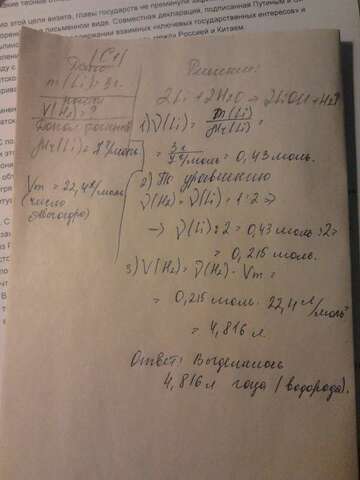 какие теория
по из этой цели визита, главы государств не преминули
письменном виде. Совместная декларация, подписанная Путиным и
«ключевых государственных интересов» и
Россией и Китаем.
[C+]
Дано
m(Li)=3г.
Найти
V(H2)=?
Mr(Li)=
Vm=22,4л/моль
(число
Авогадро)
Решение:
2Li+2H2O → 2LiOH+H2↑
1) ν(Li)= m(Li)/Mr(Li) =
= 3г/ г/моль = 0,43 моль.
2) По уравнению
ν(H2) = ν(Li) = 1:2 ⇒
→ ν(Li):2 = 0,43 моль:2=
= 0,215 моль.
3) V(H2)= ν(H2)·Vm=
= 0,215 моль · 22,4 л/моль=
= 4,816 л.
Ответ: Выделилось
4,816 л газа (водорода).